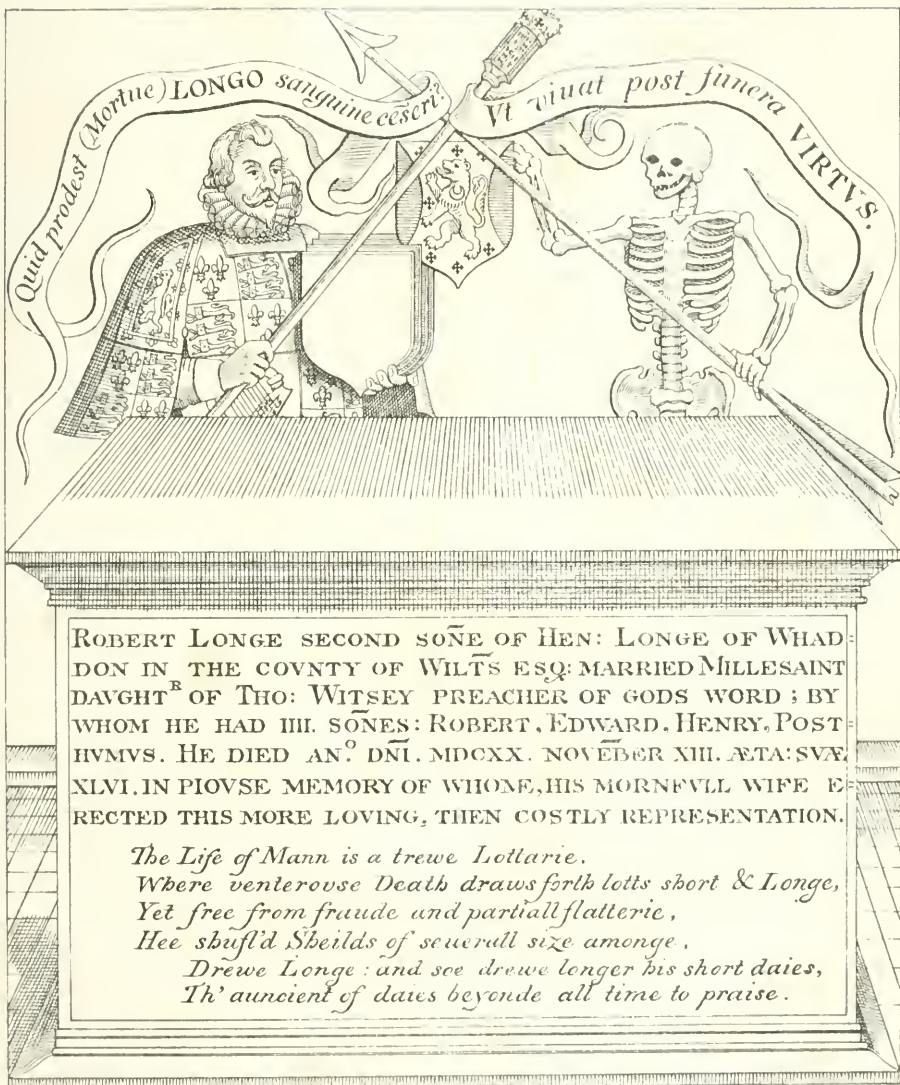 Quid prodest (Mortue) LONGO sanguine cēseri?
Vt viuat post funera VIRTVS.
ROBERT LONGE SECOND SOÑE OF HEN: LONGE OF WHAD=
DON IN THE COVNTY OF WILTS̄ ESQ: MARRIED MILLESAINT
DAVGHTᴿ OF THO: WITSEY PREACHER OF GODS WORD; BY
WHOM HE HAD IIII. SOÑES: ROBERT, EDWARD, HENRY, POST=
HVMVS. HE DIED ANº. DÑI. MDCXX. NOVĒBER XIII. ÆTA: SVÆ
XLVI. IN PIOVSE MEMORY OF WHOME, HIS MORNFVLL WIFE E=
RECTED THIS MORE LOVING, THEN COSTLY REPRESENTATION.
The Life of Mann is a trewe Lottarie,
Where venterouse Death draws forth lotts short & Longe,
Yet free from fraude and partiall flatterie,
Hee shufl'd Sheilds of seuerall size amonge,
Drewe Longe: and soe drewe longer his short daies,
Th' auncient of daies beyonde all time to praise.